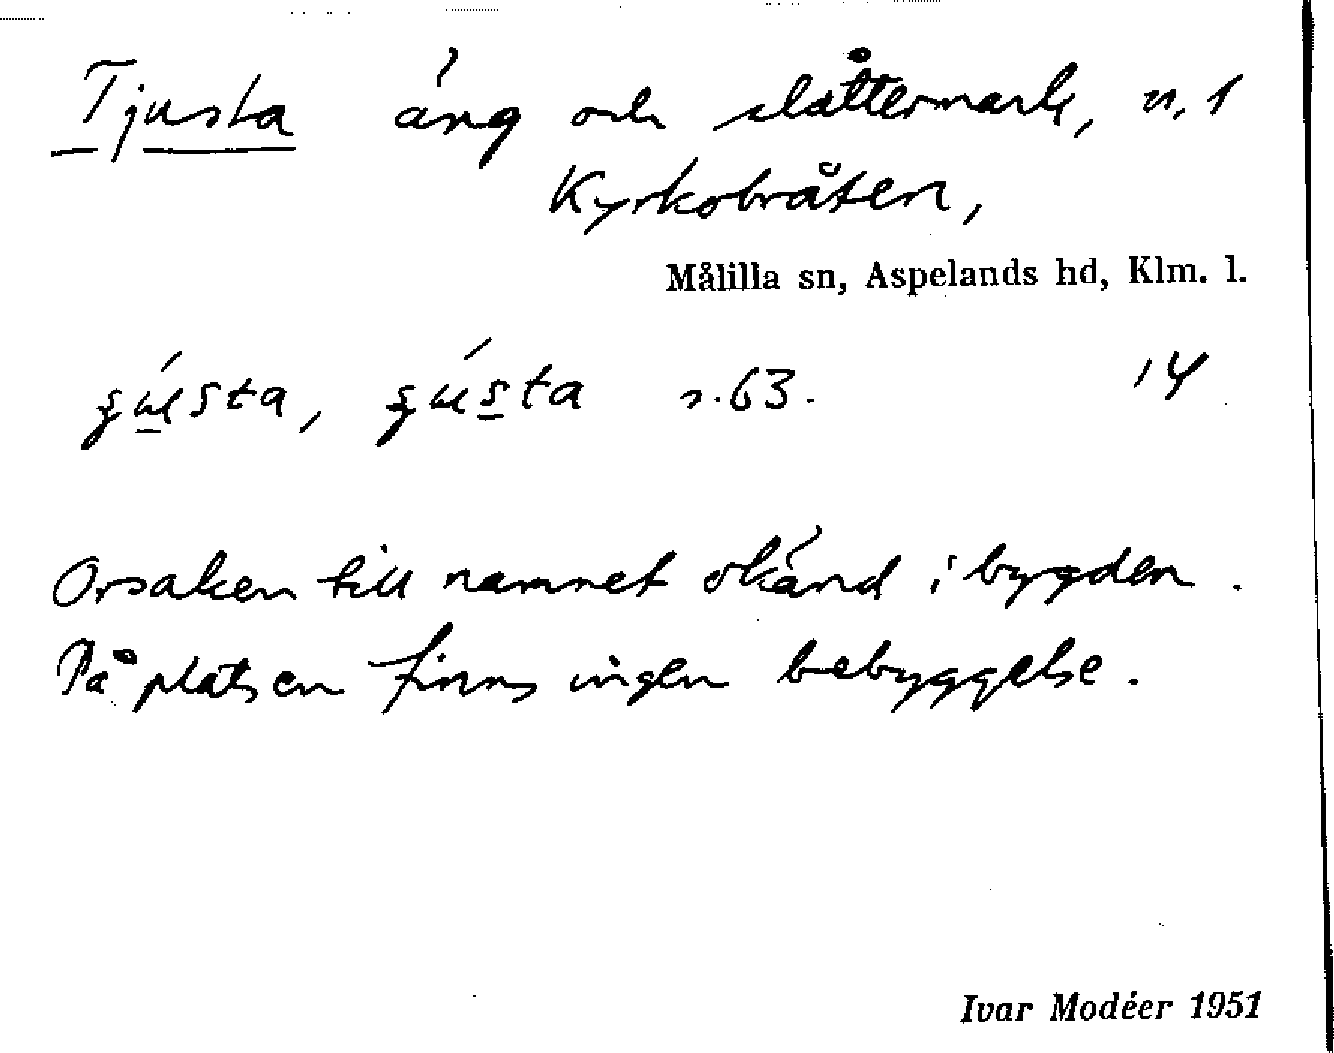 Tjusta äng och slåttermark, n. 1
Kyrkobråten,
Målilla sn, Aspelands hd, Klm. l.
s. 63. 14
Orsaken till namnet okänd i bygden.
På platsen finns ingen bebyggelse.
Ivar Modéer 1951